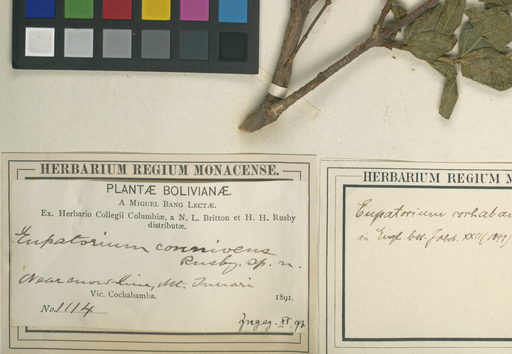 HERBARIUM REGIUM MONACENSE.
PLANTÆ BOLIVIANÆ.
A MIGUEL BANG LECTÆ.
Ex. Herbario Collegii Columbiæ, a N. L. Britton et H. H. Rusby
distributæ.
Eupatorium connivens
Rusby. sp. n.
Near snow line, Mt. Tunari
Vic. Cochabamba. 1891.
No. 1114
Ingeg. XI. 93
HERBARIUM REGIUM M
Eupatorium cochaba
in Engl. bot. Jahrb. XXII (1897)